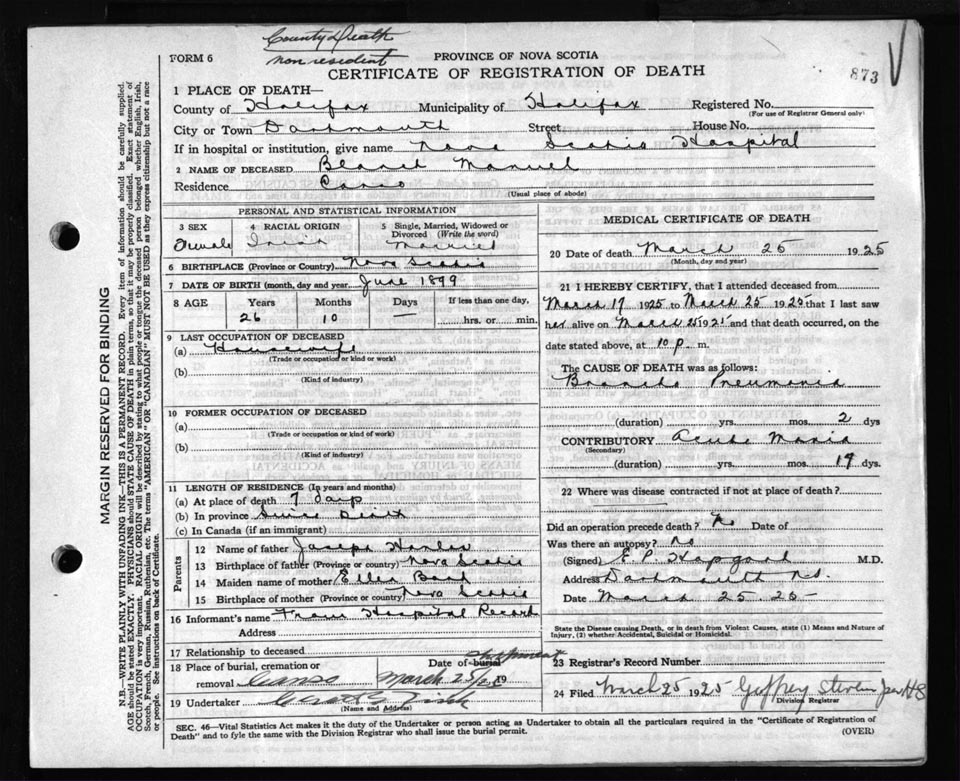 County Death
non resident
FORM 6
PROVINCE OF NOVA SCOTIA
873
CERTIFICATE OF REGISTRATION OF DEATH
1 PLACE OF DEATH—
County of Halifax Municipality of Halifax Registered No.
(For use of Registrar General only)
City or Town Dartmouth Street House No.
If in hospital or institution, give name Nova Scotia Hospital
2 NAME OF DECEASED Manuel
Residence Canso
(Usual place of abode)
PERSONAL AND STATISTICAL INFORMATION
3 SEX 4 RACIAL ORIGIN 5 Single, Married, Widowed or Divorced (Write the word)
Female Married
6 BIRTHPLACE (Province or Country) Nova Scotia
7 DATE OF BIRTH (month, day and year) June 1899
8 AGE Years Months Days If less than one day,
26 10 — hrs. or min.
9 LAST OCCUPATION OF DECEASED
(a) Housewife
(Trade or occupation or kind or work)
(b)
(Kind of industry)
10 FORMER OCCUPATION OF DECEASED
(a)
(Trade or occupation or kind of work)
(b)
(Kind of industry)
11 LENGTH OF RESIDENCE (In years and months)
(a) At place of death 7 days
(b) In province Since
(c) In Canada (if an immigrant)
Parents
12 Name of father Joseph
13 Birthplace of father (Province or country) Nova Scotia
14 Maiden name of mother Ellen
15 Birthplace of mother (Province or country) Nova Scotia
16 Informant's name From Hospital Record
Address
17 Relationship to deceased
18 Place of burial, cremation or removal Canso Date of burial shipment March 25/25 19
19 Undertaker
(Name and Address)
MEDICAL CERTIFICATE OF DEATH
20 Date of death March 25 1925
(Month, day and year)
21 I HEREBY CERTIFY, that I attended deceased from
March 19 1925 to March 25 1925 that I last saw
her alive on March 25 1925 and that death occurred, on the
date stated above, at 10 p. m.
The CAUSE OF DEATH was as follows:
Broncho Pneumonia
(duration) yrs. mos. 2 dys
CONTRIBUTORY Acute Mania
(Secondary)
(duration) yrs. mos. 19 dys.
22 Where was disease contracted if not at place of death?
Did an operation precede death? No Date of
Was there an autopsy? No
(Signed) E. P. Hopgood M.D.
Address Dartmouth N.S.
Date March 25. 25-
State the Disease causing Death, or in death from Violent Causes, state (1) Means and Nature of
Injury, (2) whether Accidental, Suicidal or Homicidal.
23 Registrar's Record Number
24 Filed March 25 1925 Geffrey
Division Registrar
SEC. 46—Vital Statistics Act makes it the duty of the Undertaker or person acting as Undertaker to obtain all the particulars required in the "Certificate of Registration of
Death" and to fyle the same with the Division Registrar who shall issue the burial permit.
(OVER)
MARGIN RESERVED FOR BINDING
N. B.—WRITE PLAINLY WITH UNFADING INK—THIS IS A PERMANENT RECORD. Every item of information should be carefully supplied.
AGE should be stated EXACTLY. PHYSICIANS should STATE CAUSE OF DEATH in plain terms, so that it may be properly classified. Exact statement of
OCCUPATION is very important. RACIAL ORIGIN will be described by stating to what people or tongue the deceased person belonged whether English, Irish,
Scotch, French, German, Russian, Ruthenian, etc. The terms "AMERICAN" OR "CANADIAN" MUST NOT BE USED as they express citizenship but not a race
or people. See instructions on back of Certificate.